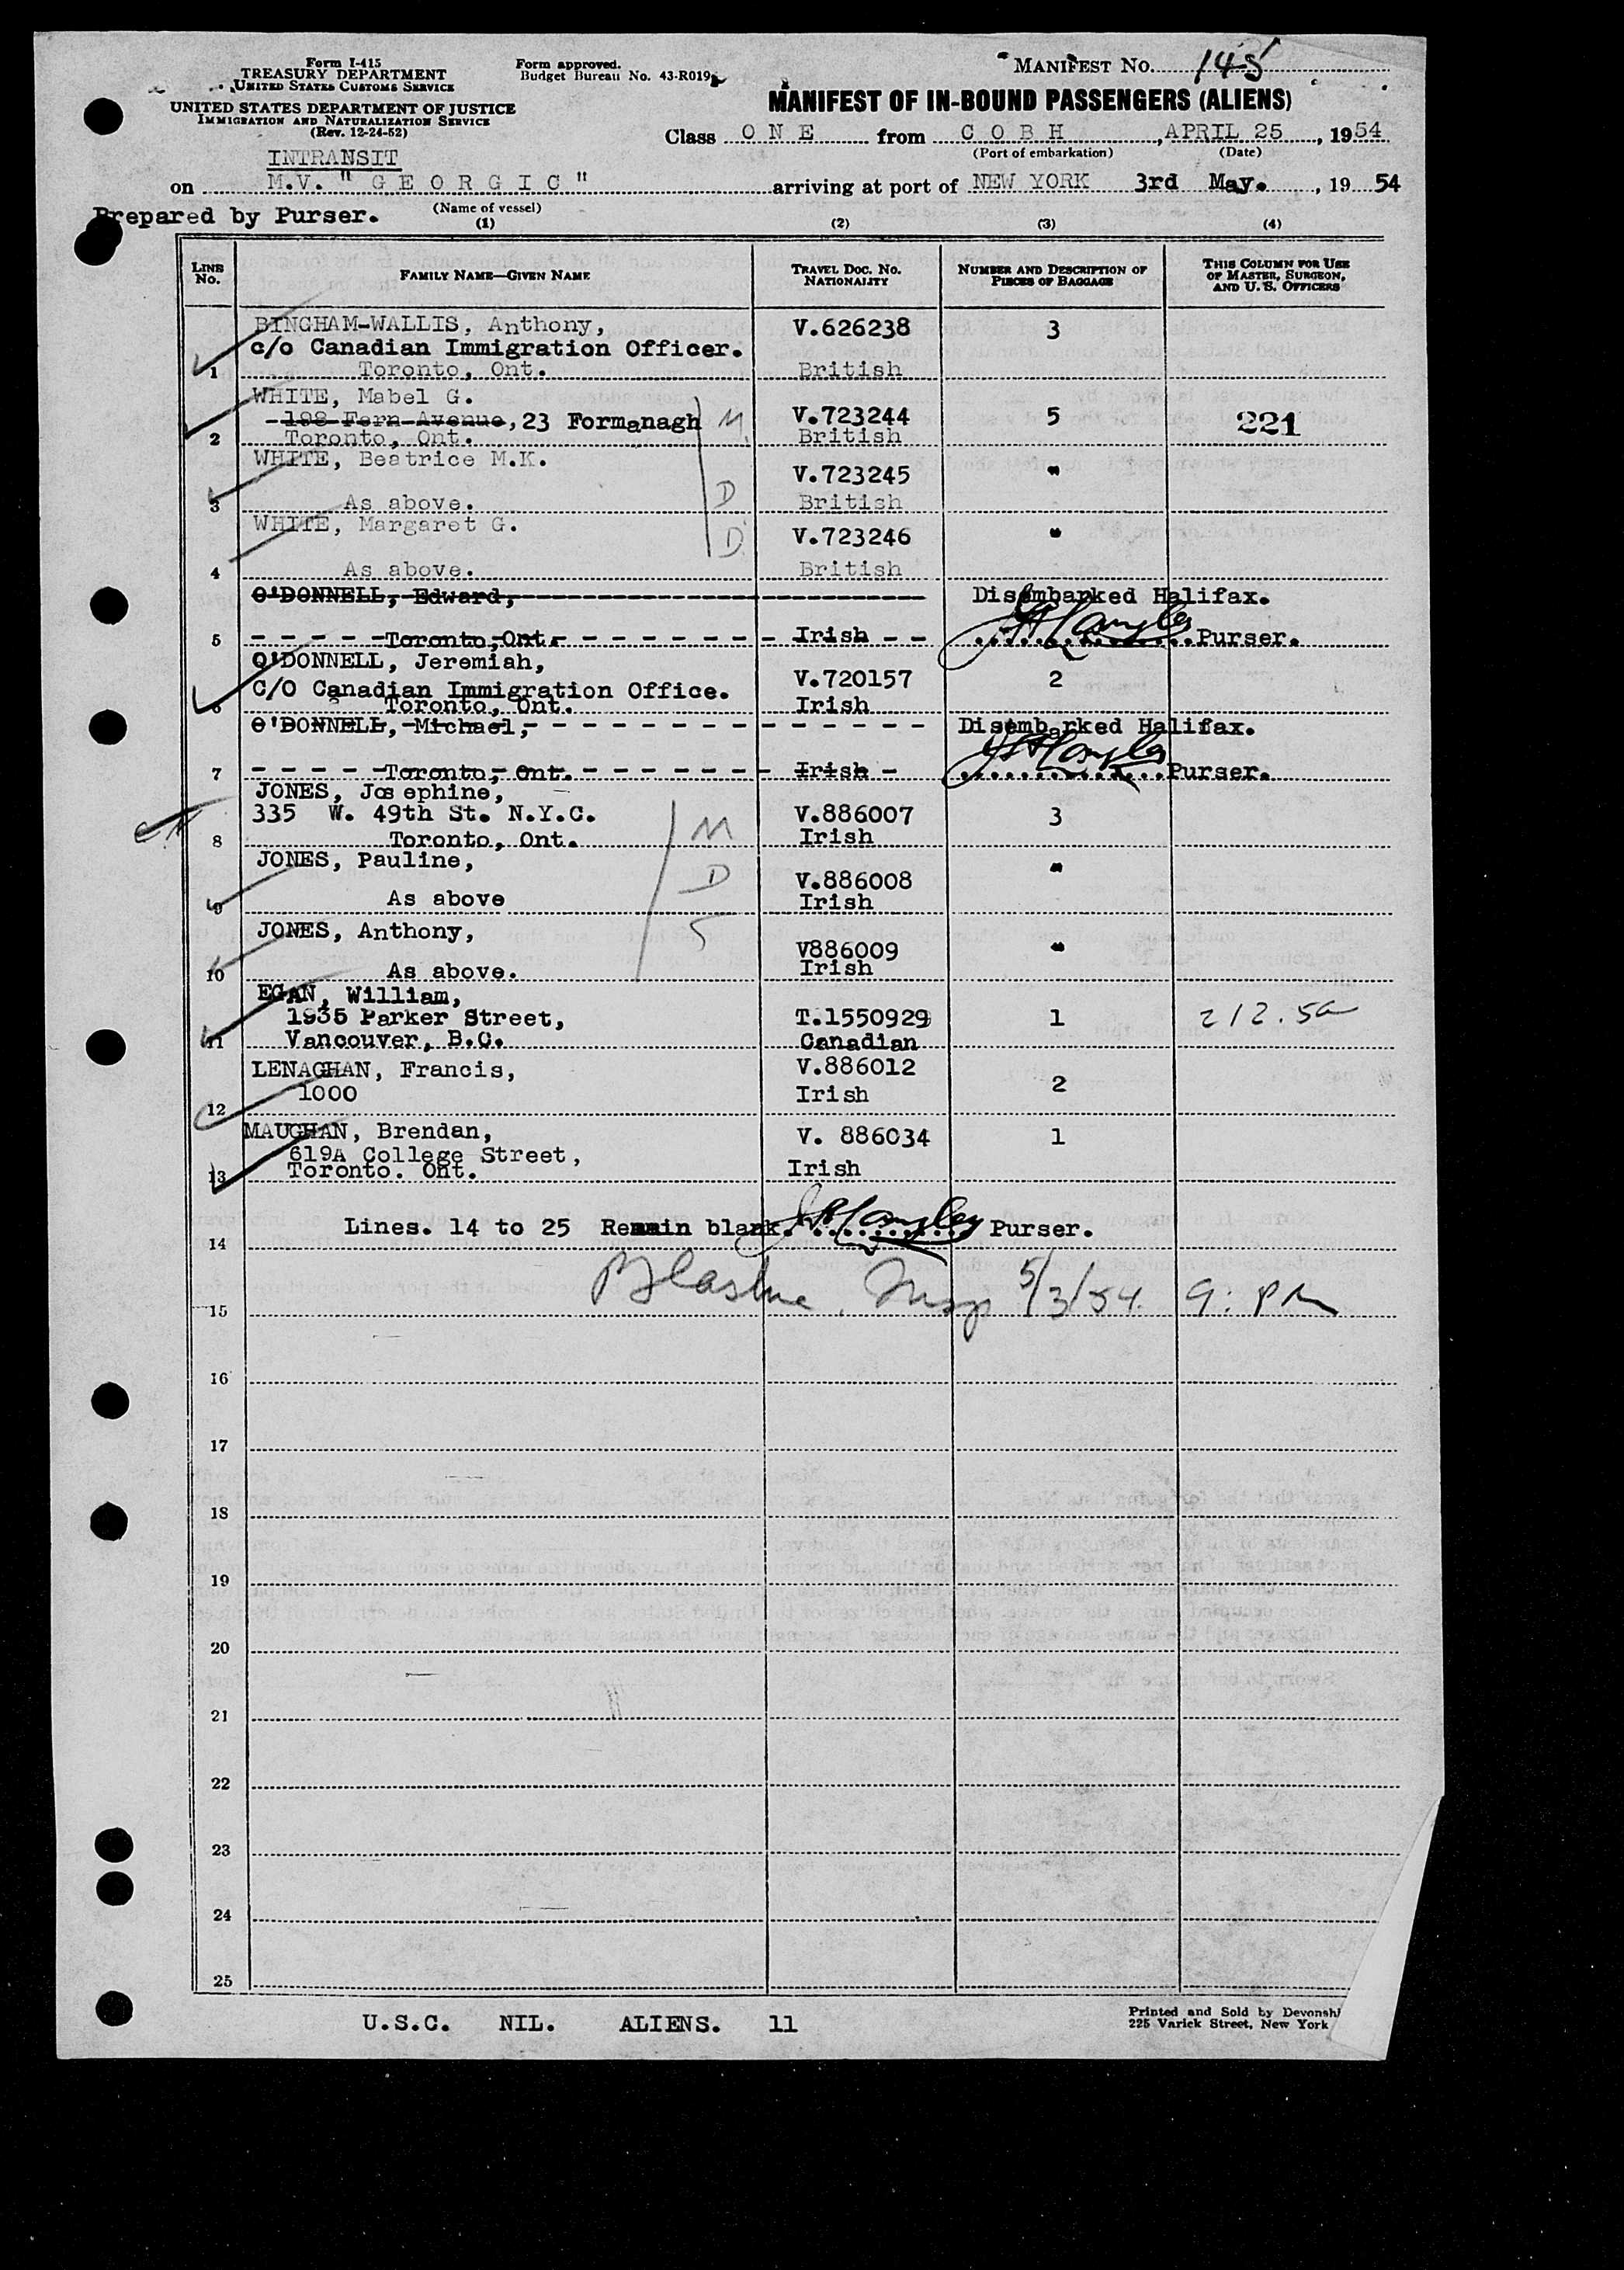 Form I-415
TREASURY DEPARTMENT
UNITED STATES CUSTOMS SERVICE
UNITED STATES DEPARTMENT OF JUSTICE
IMMIGRATION AND NATURALIZATION SERVICE
(Rev. 12-24-52)
Form approved.
Budget Bureau No. 43-R019
MANIFEST NO. 145
MANIFEST OF IN-BOUND PASSENGERS (ALIENS)
Class O N E from C O B H, APRIL 25, 1954
(Port of embarkation) (Date)
INTRANSIT
on M.V. "G E O R G I C" arriving at port of NEW YORK 3rd May., 19 54
Prepared by Purser. (Name of vessel)
(1) (2) (3) (4)
LINE NO. FAMILY NAME—GIVEN NAME TRAVEL DOC. NO. NATIONALITY NUMBER AND DESCRIPTION OF PIECES OF BAGGAGE THIS COLUMN FOR USE OF MASTER, SURGEON, AND U. S. OFFICERS
BINGHAM-WALLIS, Anthony, V.626238 3
c/o Canadian Immigration Officer.
1 Toronto, Ont. British
WHITE, Mabel G.
198 Fern Avenue, 23 Formanagh M. V.723244 5 221
2 Toronto, Ont. British
WHITE, Beatrice M.K. V.723245 "
3 As above. D British
WHITE, Margaret G. V.723246 "
D.
4 As above. British
O'DONNELL, Edward, Disembarked Halifax.
5 Toronto, Ont. Irish Purser.
O'DONNELL, Jeremiah, V.720157 2
C/O Canadian Immigration Office.
6 Toronto, Ont. Irish
O'DONNELL, Michael, Disembarked Halifax.
7 Toronto, Ont. Irish Purser.
JONES, Josephine,
335 W. 49th St. N.Y.C. V.886007 3
8 Toronto, Ont. M Irish
JONES, Pauline, D V.886008 "
9 As above Irish
JONES, Anthony, S V886009 "
10 As above. Irish
EGAN, William,
1935 Parker Street, T.1550929 1 212.5a
11 Vancouver, B.C. Canadian
LENAGHAN, Francis, V.886012
1000 Irish 2
12
MAUGHAN, Brendan, V. 886034 1
619A College Street,
13 Toronto. Ont. Irish
Lines. 14 to 25 Remain blank. Purser.
14
15 Insp 5/3/54. 9: PM
16
17
18
19
20
21
22
23
24
25
U.S.C. NIL. ALIENS. 11
Printed and Sold by
225 Varick Street, New York